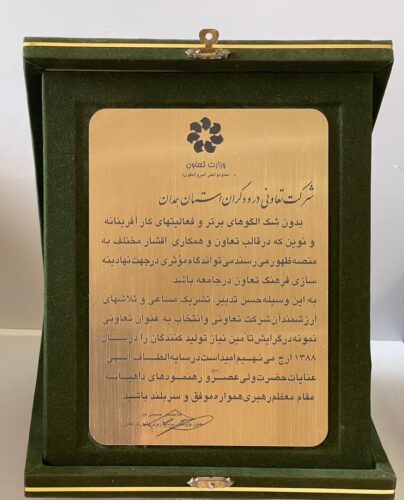 وزارت تعاون
شرکت تعاونی درودگران استان همدان
بدون شک الگوهای برتر و فعالیتهای کار آفرینانه
و نوین که در قالب تعاون و همکاری اقشار مختلف به
منصه ظهور می رسند می تواند گام مؤثری در جهت نهادینه
سازی فرهنگ تعاون در جامعه باشد.
به این وسیله حسن تدبیر، تشریک مساعی و تلاشهای
ارزشمندآن شرکت تعاونی و انتخاب به عنوان تعاونی
نمونه در گرایش تامین نیاز تولید کنندگان را در سال
۱۳۸۸ ارج می نهیم امید است در سایه الطاف الهی
عنایات حضرت ولی عصر و رهنمودهای داهیانه
مقام معظم رهبری همواره موفق و سربلند باشید.